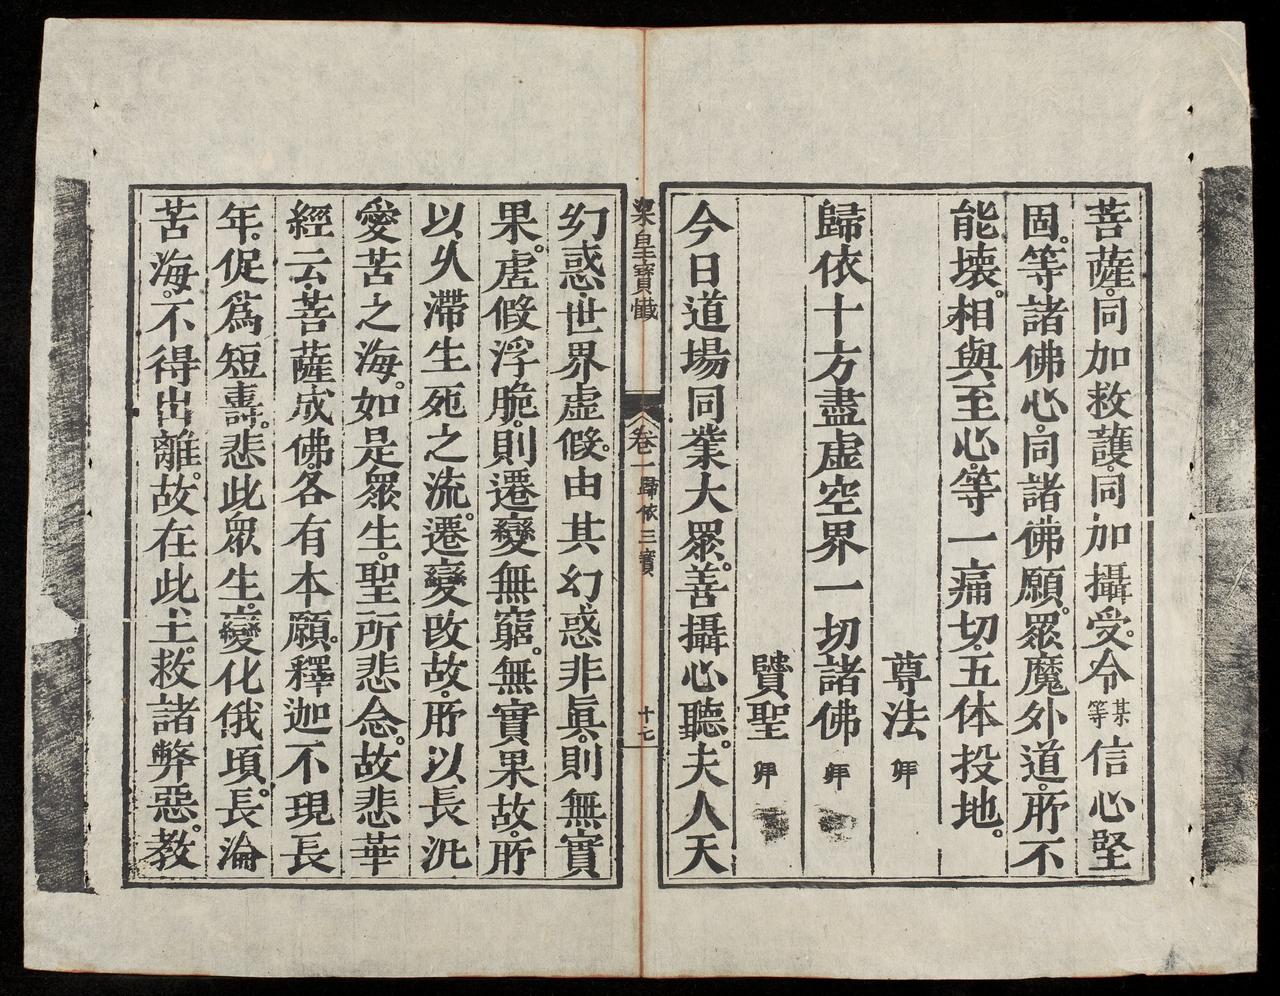 菩薩。同加救護。同加攝受。令某等信心堅
固。等諸佛心。同諸佛願。眾魔外道。所不
能壞。相與至心。等一痛切。五体投地。
尊法 𢫶
歸依十方盡虛空界一切諸佛 𢫶
賢聖 𢫶
今日道場同業大眾。善攝心聽。夫人天
梁皇寶懺
卷一 歸依三寶
十七
幻惑。世界虛假。由其幻惑非真。則無實
果。虛假浮脆。則遷變無窮。無實果故。所
以久滯生死之流。遷變改故。所以長汎
愛苦之海。如是眾生。聖所悲念。故悲華
經云。菩薩成佛。各有本願。釋迦不現長
年。促為短壽。悲此眾生。變化俄頃。長淪
苦海。不得出離。故在此土。救諸弊惡。教